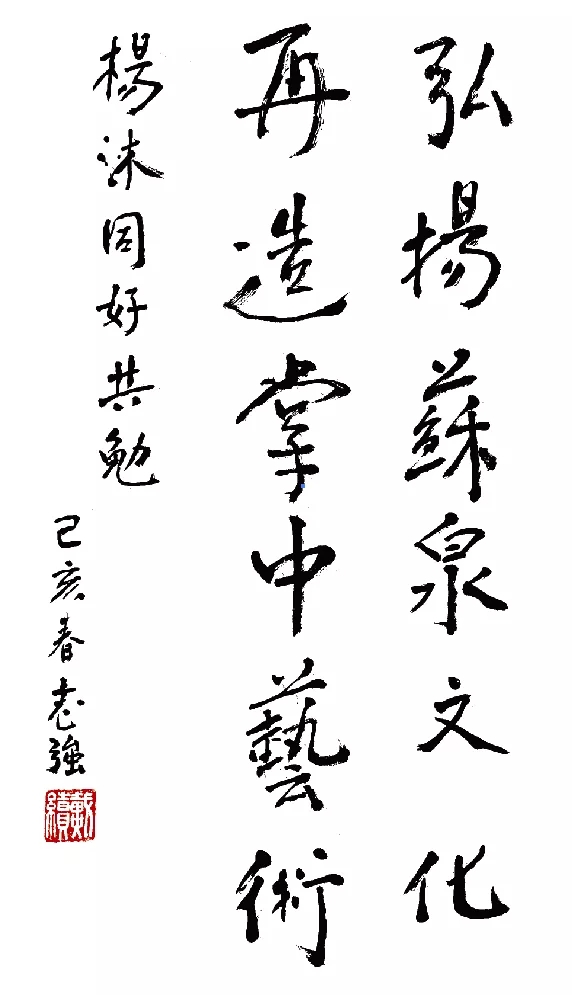 弘揚蘇泉文化
再造掌中藝術
楊沫同好共勉
己亥春志強